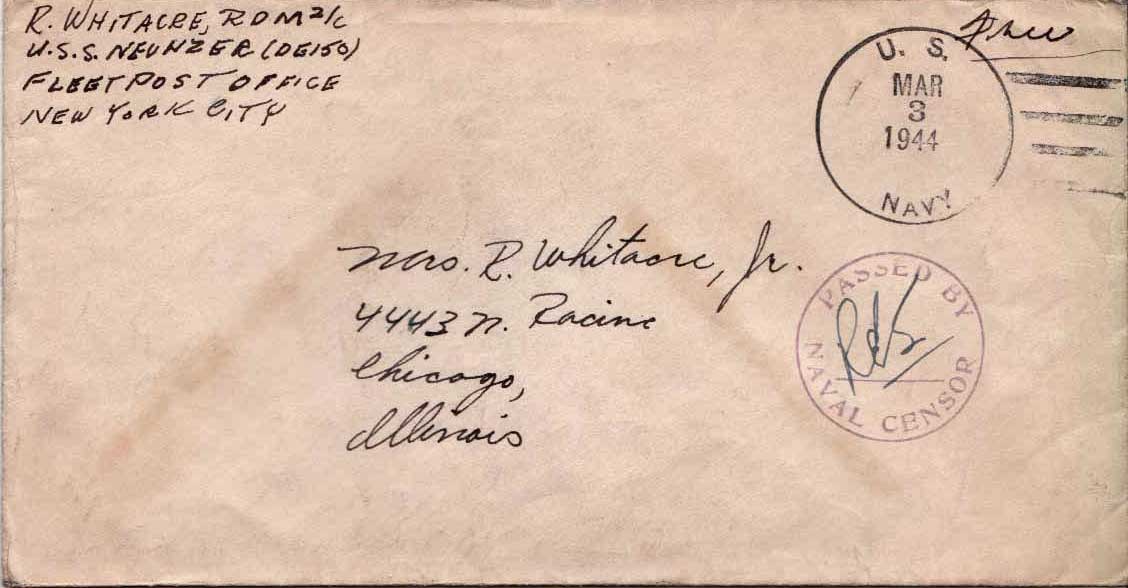 R. WHITACRE, RDM 2/c
U.S.S. NEUNZER (DE150)
FLEET POST OFFICE
NEW YORK CITY
Free
U. S.
MAR
3
1944
NAVY
Mrs. R. Whitacre, Jr.
4443 N. Racine
Chicago,
Illinois
PASSED BY
NAVAL CENSOR